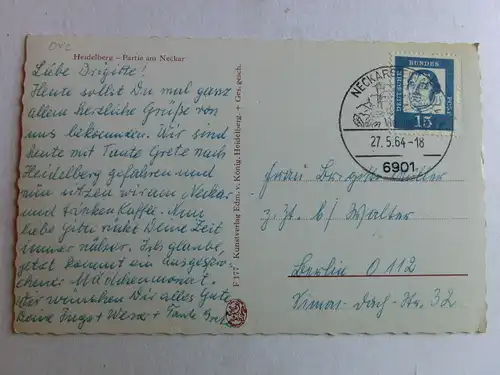 Heidelberg – Partie am Neckar
Liebe Brigitte!
Heute sollst Du mal ganz
allein herzliche Grüße von
uns bekommen. Wir sind
heute mit Tante Grete nach
Heidelberg gefahren und
nun sitzen wir am Neckar
und trinken Kaffee. Nun
liebe Gitti rückt Deine Zeit
immer näher. Ich glaube,
jetzt kommt ein ausgespro-
chener Mädchenmonat.
Wir wünschen Dir alles Gute
Deine Inge + Werner + Tante Grete
F 177 Kunstverlag Edm. v. König, Heidelberg. + Ges. gesch.
DEUTSCHE BUNDESPOST
15
27.5.64-18
6901
Frau Brigitte Müller
z. Zt. b/ Walter
Berlin O 112
Simon-Dach-Str. 32